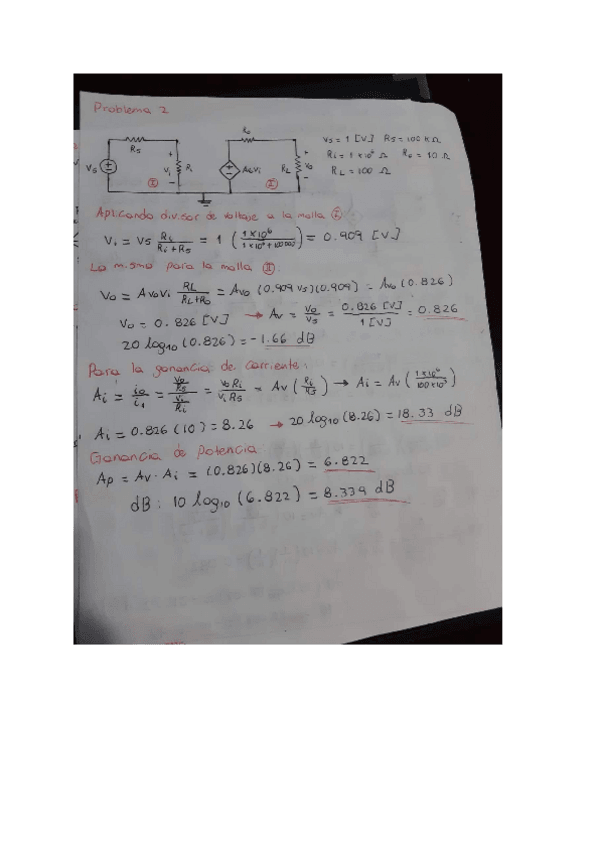 Problema 2
Rs Vs Vi Ri I Ro AvoVi II RL Vo
Vs = 1 [V] Rs = 100 KΩ
Ri = 1 x 10⁶ Ω Ro = 10 Ω
RL = 100 Ω
Aplicando divisor de voltaje a la malla I:
Vi = Vs Ri/(Ri+Rs) = 1 (1x10⁶/(1x10⁶+100000)) = 0.909 [V]
Lo mismo para la malla II:
Vo = AvoVi RL/(RL+Ro) = Avo (0.909 Vs)(0.909) = Avo (0.826)
Vo = 0.826 [V] → Av = Vo/Vs = 0.826 [V]/1 [V] = 0.826
20 log10 (0.826) = -1.66 dB
Para la ganancia de corriente:
Ai = io/i1 = (Vo/Rs)/(Vi/Ri) = Vo Ri/Vi Rs = Av (Ri/Rs) → Ai = Av (1x10⁶/100x10³)
Ai = 0.826 (10) = 8.26 → 20 log10 (8.26) = 18.33 dB
Ganancia de Potencia:
Ap = Av · Ai = (0.826)(8.26) = 6.822
dB: 10 log10 (6.822) = 8.339 dB